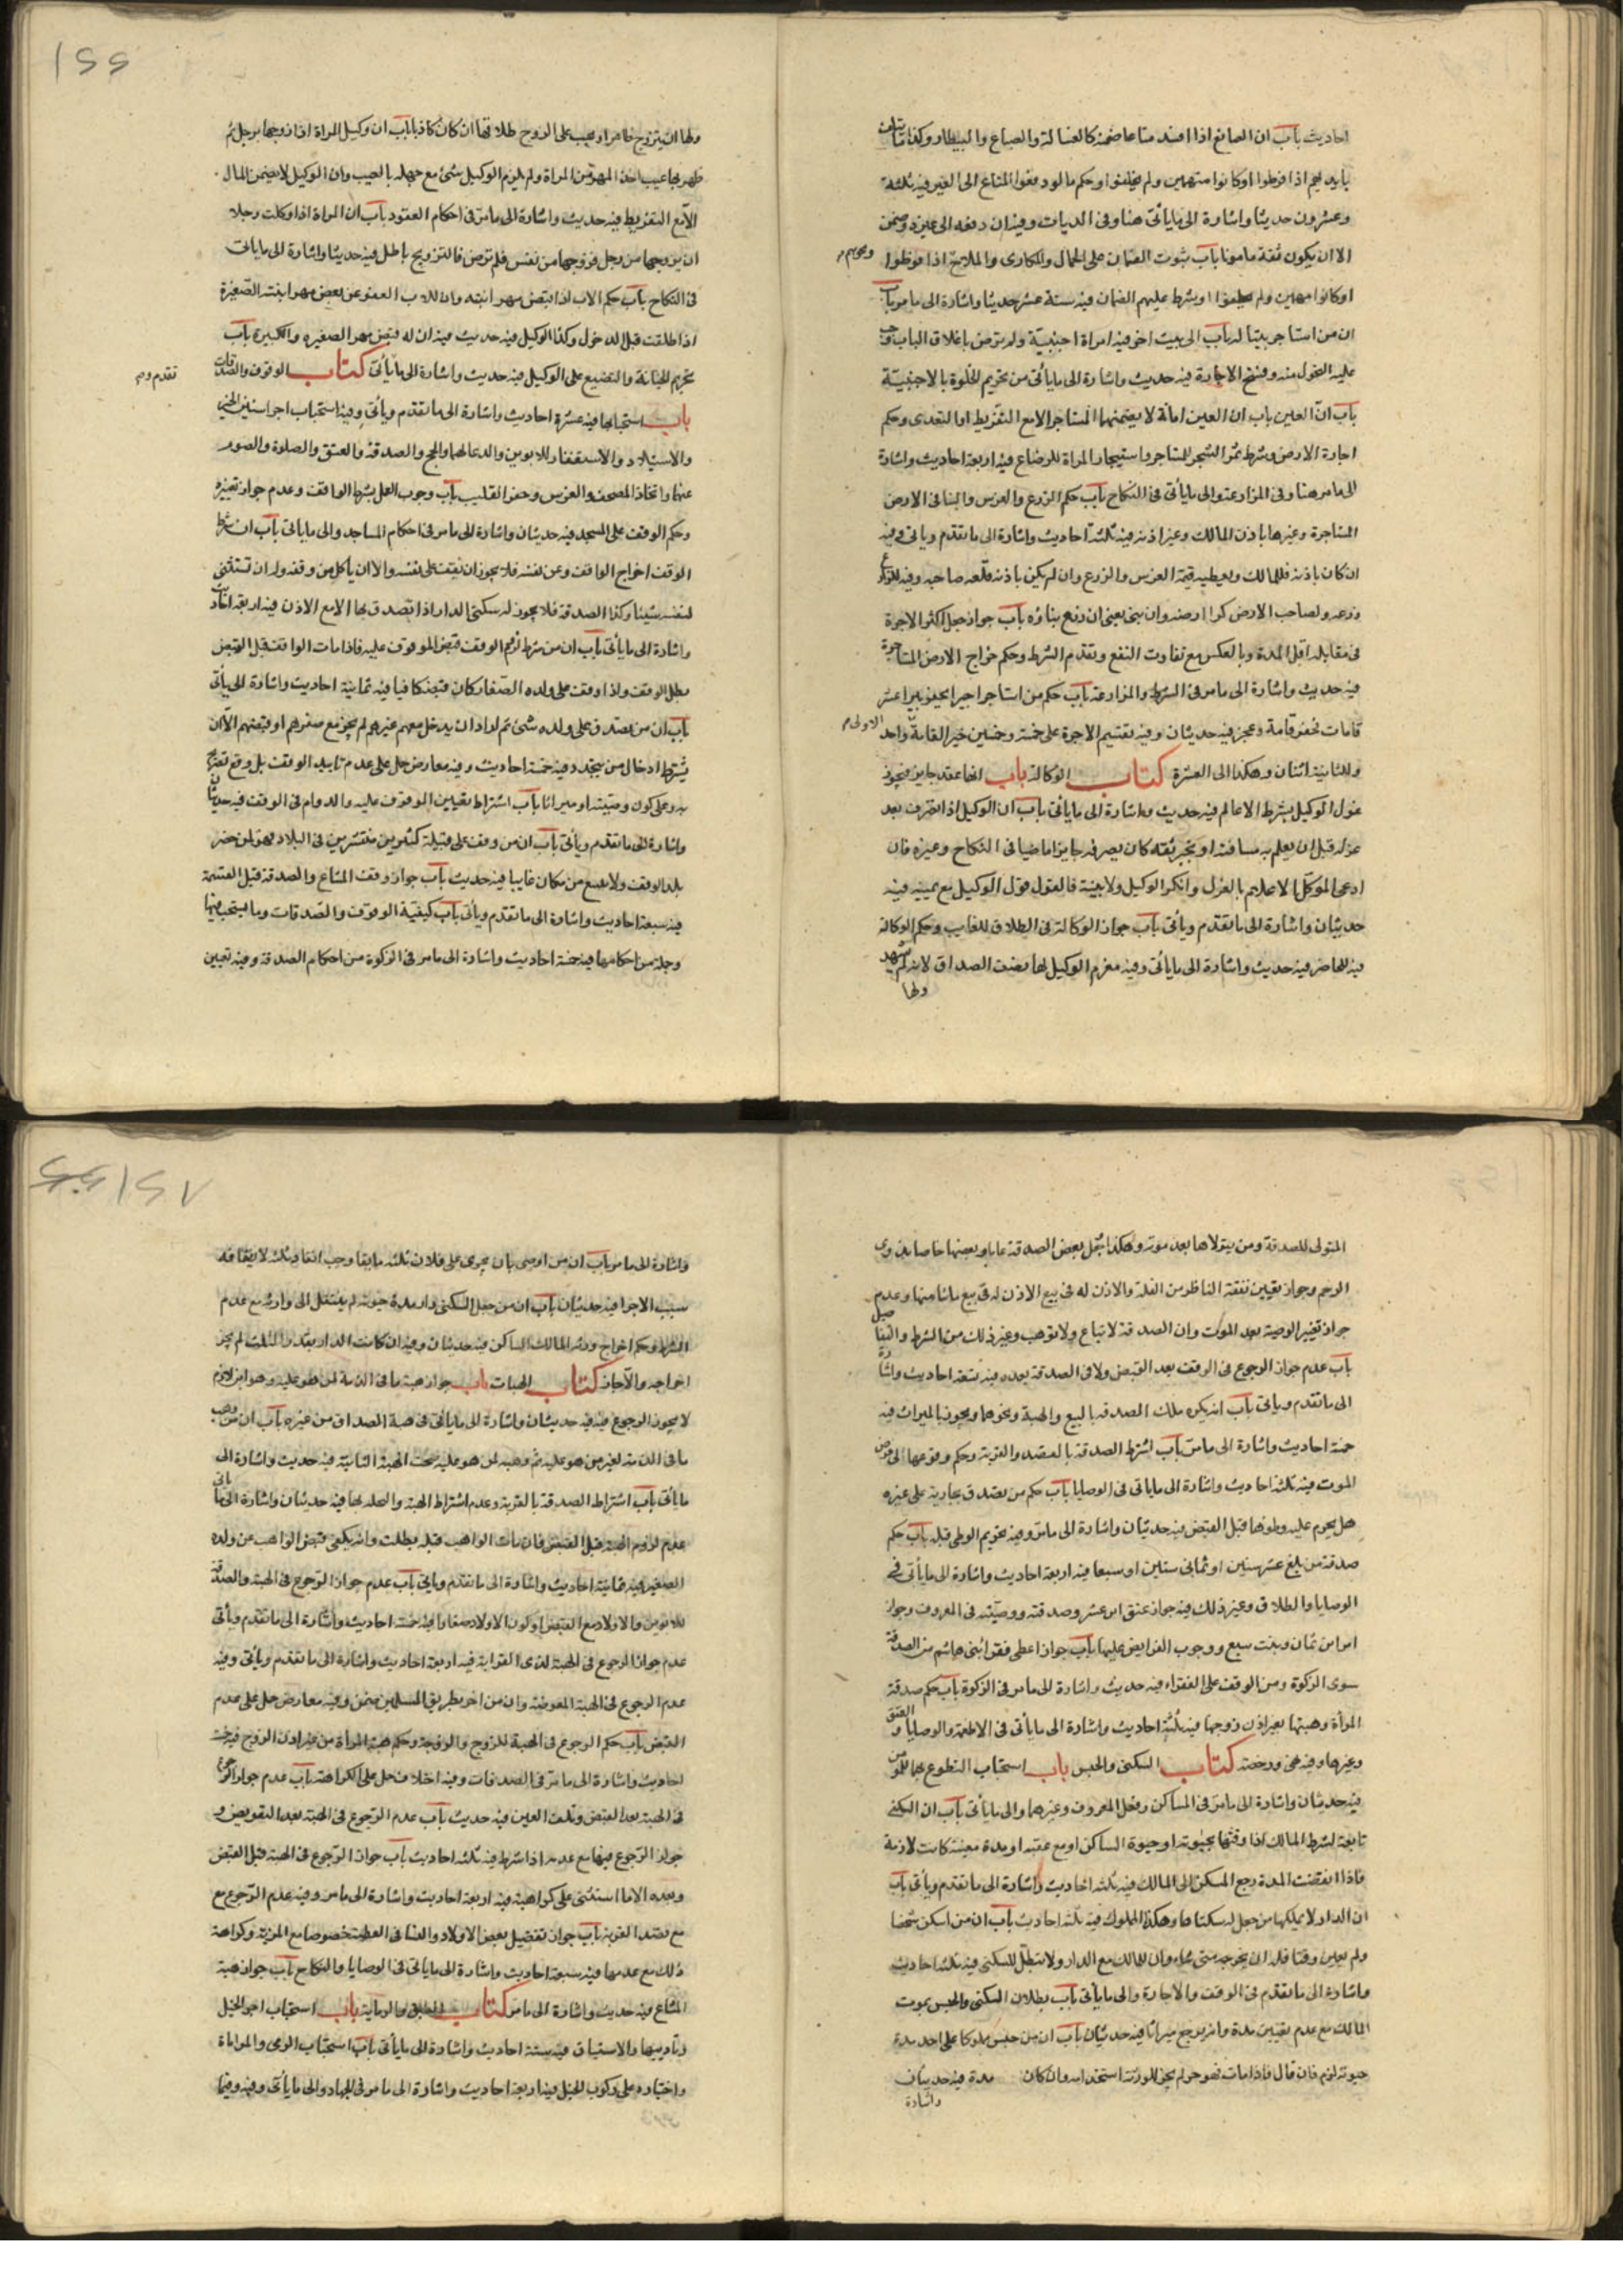 احاديث باب ان الصانع اذا افسد متاعا ضمنه كالغسال والصباغ والبيطار وكذا ما تلف
بايديهم اذا فرطوا او كانوا متهمين ولم يحلفوا وحكم ما لو دفعوا المتاع الى الغير فيه ثلثة
وعشرون حديثا واشارة الى ما ياتى هنا وفى الديات وفيه ان دفعه الى غيره وضمن
الا ان يكون ثقة مامونا باب ثبوت الضمان على الجمال والمكارى والملاح اذا فرطوا ونحوهم
او كانوا متهمين ولم يحلفوا او يشرط عليهم الضمان فيه ستة عشر حديثا واشارة الى ما مر باب
ان من استاجر بيتا له باب الى بيت اخر فيه امراة اجنبية ولم ترض باغلاق الباب وجب
عليه التحول منه وفسخ الاجارة فيه حديث واشارة الى ما ياتى من تحريم الخلوة بالاجنبية
باب ان العين امانة لا يضمنها المستاجر الا مع التفريط او التعدى وحكم
اجارة الارض وشرط ثمر الشجر للمستاجر واستيجار المراة للرضاع فيه اربعة احاديث واشارة
الى ما مر هنا وفى المزارعة والى ما ياتى فى النكاح باب حكم الزرع والغرس والبنا فى الارض
المستاجرة وغيرها باذن المالك وغير اذنه فيه ثلثة احاديث واشارة الى ما تقدم وياتى وفيه
ان كان باذنه فللمالك ويعطيه قيمة الغرس والزرع وان لم يكن باذنه قلعه صاحبه وفيه للزارع
زرعه ولصاحب الارض كرا ارضه وان بنى يعنى ان رفع بناؤه باب جواز جعل اكثر الاجرة
فى مقابلة اقل المدة وبالعكس مع تفاوت النفع وتقدم الشرط وحكم خراج الارض المستاجرة
فيه حديث واشارة الى ما مر فى الشرط والمزارعة باب حكم من استاجر اجيرا يحفر بيرا عشر
قامات فحفر قامة وعجز فيه حديثان وفيه تقسيم الاجرة على خمسة وخمسين جزا للقامة الاولى واحد
وللثانية اثنان وهكذا الى العشرة كتاب الوكالة باب انها عقد جايز فيجوز
عزل الوكيل بشرط الاعلام فيه حديث واشارة الى ما ياتى باب ان الوكيل اذا تصرف بعد
عزله قبل ان يعلم به مسافهة او بخبر ثقة كان تصرفه جايزا ماضيا فى النكاح وغيره فان
ادعى الموكل الاعلام بالعزل وانكر الوكيل ولا بينة فالقول قول الوكيل مع يمينه فيه
حديثان واشارة الى ما تقدم وياتى باب جواز الوكالة فى الطلاق للغايب وحكم الوكالة
فيه للحاضر فيه حديث واشارة الى ما ياتى وفيه مغرم الوكيل لها نصف الصداق لانه لم يشهد
ولها
ولها ان يتزوج ظاهرا ويجب على الزوج طلاقها ان كان كاذبا باب ان وكيل المراة اذا زوجها برجل ثم
ظهر بها عيب اخذ المهر من المراة ولم يلزم الوكيل شئ مع جهله بالعيب وان الوكيل لا يضمن المال
الا مع التفريط فيه حديث واشارة الى ما مر فى احكام العقود باب ان المراة اذا وكلت رجلا
ان يزوجها من رجل فزوجها من نفسه فلم ترض فالتزويج باطل فيه حديث واشارة الى ما ياتى
فى النكاح باب حكم الاب اذا قبض مهر ابنته وان للاب العفو عن بعض مهر ابنته الصغيرة
اذا طلقت قبل الدخول وكذا الوكيل فيه حديث فيه ان له قبض مهر الصغيره والكبيرة باب
تحريم الخيانة والتضييع على الوكيل فيه حديث واشارة الى ما تقدم وياتى كتاب الوقوف والصدقات
باب استحبابها فيه عشرة احاديث واشارة الى ما تقدم وياتى وفيه استحباب
والاستيلاد والاستغفار للابوين والدعا لهما والحج والصدقة والعتق والصلوة والصوم
عنهما واتخاذ المصحف والغرس وحفر القليب باب وجوب العمل بشرط الواقف وعدم جواز تغييره
وحكم الوقف على المسجد فيه حديثان واشارة الى ما مر فى احكام المساجد والى ما ياتى باب ان شرط
الوقف اخراج الواقف له عن نفسه فلا يجوز ان يقف على نفسه ولا ان ياكل من وقفه وله ان تستثنى
لنفسه شيئا وكذا الصدقة فلا يجوز له سكنى الدار اذا تصدق بها الا مع الاذن فيه اربعة احاديث
واشارة الى ما ياتى باب ان من شرط لزوم الوقف قبض الموقوف عليه فاذا مات الواقف قبل القبض
بطل الوقف واذا وقف على ولده الصغار كان قبضه كافيا فيه ثمانية احاديث واشارة الى ما ياتى
باب ان من تصدق على ولده بشئ ثم اراد ان يدخل معهم غيرهم لم يجز مع صغرهم او قبضهم الا ان
يشترط ادخال من يتجدد فيه خمسة احاديث وفيه معارض حمل على عدم تابيد الوقف بل وقع تصريح
به وعلى كونه وصية او ميراثا باب اشتراط تعيين الموقوف عليه والدوام فى الوقف فيه حديثا
واشارة الى ما تقدم وياتى باب ان من وقف على قبيلة كثيرين منتشرين فى البلاد فهو لمن حضر
بلد الوقف ولا يتبع من كان غايبا فيه حديث باب جواز وقف المشاع والصدقة قبل القسمة
فيه سبعة احاديث واشارة الى ما تقدم وياتى باب كيفية الوقوف والصدقات وما يستحب فيها
وجملة من احكامها فيه خمسة احاديث واشارة الى ما مر فى الزكوة من احكام الصدقة وفيه تعيين
المتولى للصدقة ومن يتولاها بعد موته وهكذا بجعل بعض الصدقة عاما وبعضها خاصا بذوى
الرحم وجواز تعيين نفقة الناظر من الغلة والاذن له فى بيع ما شا منها وعدم
جواز تغيير الوصية بعد الموت وان الصدقة لا تباع ولا توهب وغير ذلك من الشرط والتفاصيل
باب عدم جواز الرجوع فى الوقف بعد القبض ولا فى الصدقة بعده فيه تسعة احاديث واشارة
الى ما تقدم وياتى باب انه يكره تملك الصدقة بالبيع والهبة ونحوهما ويجوز بالميراث فيه
خمسة احاديث واشارة الى ما مر باب اشتراط الصدقة بالقصد والقربة وحكم وقوعها فى مرض
الموت فيه ثلثة احاديث واشارة الى ما ياتى فى الوصايا باب حكم من تصدق بجارية على غيره
هل يحرم عليه وطؤها قبل القبض فيه حديثان واشارة الى ما مر وفيه تحريم الوطى قبله باب حكم
صدقة من بلغ عشر سنين او ثمانى سنين او سبعا فيه اربعة احاديث واشارة الى ما ياتى فى
الوصايا والطلاق وغير ذلك فيه جواز عتق ابن عشر وصدقته ووصيته فى المعروف وجواز
امر ابن ثمان وبنت سبع ووجوب الفرايض عليهما باب جواز اعطى فقرا بنى هاشم من الصدقة
سوى الزكوة ومن الوقف على الفقراء فيه حديث واشارة الى ما مر فى الزكوة باب حكم صدقة
المرأة وهبتها بغير اذن زوجها فيه ثلثة احاديث واشارة الى ما ياتى فى الاطعمة والوصايا والعتق
وغيرها وفيه نهى ورخصة كتاب السكنى والحبس باب استحباب التطوع بهما للمؤمن
فيه حديثان واشارة الى ما مر فى المساكن وفعل المعروف وغيرهما والى ما ياتى باب ان السكنى
تابعة لشرط المالك اذا وقتها بحيوته او حيوة الساكن او مع عقبه او مدة معينة كانت لازمة
فاذا انقضت المدة رجع المسكن الى المالك فيه ثلثة احاديث واشارة الى ما تقدم وياتى باب
ان الدار لا يملكها من جعل له سكناها وهكذا المملوك فيه ثلثة احاديث باب ان من اسكن شخصا
ولم يعين وقتا فله ان يخرجه متى شاء وان للمالك مع الدار ولا تبطل السكنى فيه ثلثة احاديث
واشارة الى ما تقدم فى الوقف والاجارة والى ما ياتى باب بطلان السكنى والحبس بموت
المالك مع عدم تعيين مدة وانه يرجع ميراثا فيه حديثان باب ان من حبس مملوكا على احد مدة
حيوته لزم فان قال فاذا مات فهو حر لم يجز للورثة استخدامه وان كان مدة فيه حديثان
واشارة
واشارة الى ما مر باب ان من اوصى بان يجرى على فلان ثلثه ما بقا وجب انفاذ ثلثه
سبب الاجرا فيه حديثان باب ان من جعل السكنى دار مدة حيوته لم ينتقل الى وارثه مع عدم
الشرط وحكم اخراج ورثة المالك الساكن فيه حديثان وفيه ان كانت الدار بقدر الثلث لم يجز
اخراجه والا جاز كتاب الهبات باب جواز هبة ما فى الذمة لمن هو عليه وهو ابراء لازم
لا يجوز الرجوع فيه فيه حديثان واشارة الى ما ياتى فى هبة الصداق من غيره باب ان من وهب
ما فى الذمة لغير من هو عليه ثم وهبه لمن هو عليه صحت الهبة الثانية فيه حديث واشارة الى
ما ياتى باب اشتراط الصدقة بالقربة وعدم اشتراط الهبة والنحلة بها فيه حديثان واشارة الى ما ياتى
عدم لزوم الهبة قبل القبض فان مات الواهب قبله بطلت وانه يكفى قبض الواهب عن ولده
الصغير فيه ثمانية احاديث واشارة الى ما تقدم وياتى باب عدم جواز الرجوع فى الهبة والصدقة
للابوين والاولاد مع القبض او كون الاولاد صغارا فيه خمسة احاديث واشارة الى ما تقدم وياتى
عدم جواز الرجوع فى الهبة لذى القرابة فيه اربعة احاديث واشارة الى ما تقدم وياتى وفيه
عدم الرجوع فى الهبة المعوضة وان من اخر بطريق المسلمين ضمن وفيه معارض حمل على عدم
القبض باب حكم الرجوع فى الهبة للزوج والزوجة وحكم هبة المراة من غير اذن الزوج فيه خمسة
احاديث واشارة الى ما مر فى الصدقات وفيه اختلاف حمل على الكراهة باب عدم جواز الرجوع
فى الهبة بعد القبض وتلف العين فيه حديث باب عدم الرجوع فى الهبة بعد التعويض و
جواز الرجوع فيها مع عدمه اذا شرط فيه ثلثة احاديث باب جواز الرجوع فى الهبة قبل القبض
وبعده الا ما استثنى على كراهية فيه اربعة احاديث واشارة الى ما مر وفيه عدم الرجوع مع
مع قصد القربة باب جواز تفضيل بعض الاولاد والنسا فى العطية خصوصا مع المزية وكراهة
ذلك مع عدمها فيه سبعة احاديث واشارة الى ما ياتى فى الوصايا والنكاح باب جواز هبة
المشاع فيه حديث واشارة الى ما مر كتاب السبق والرماية باب استحباب اجرا الخيل
وتاديبها والاستباق فيه ستة احاديث واشارة الى ما ياتى باب استحباب الرمى والمراماة
واختياره على ركوب الخيل فيه اربعة احاديث واشارة الى ما مر فى الجهاد والى ما ياتى وفيه وفيما